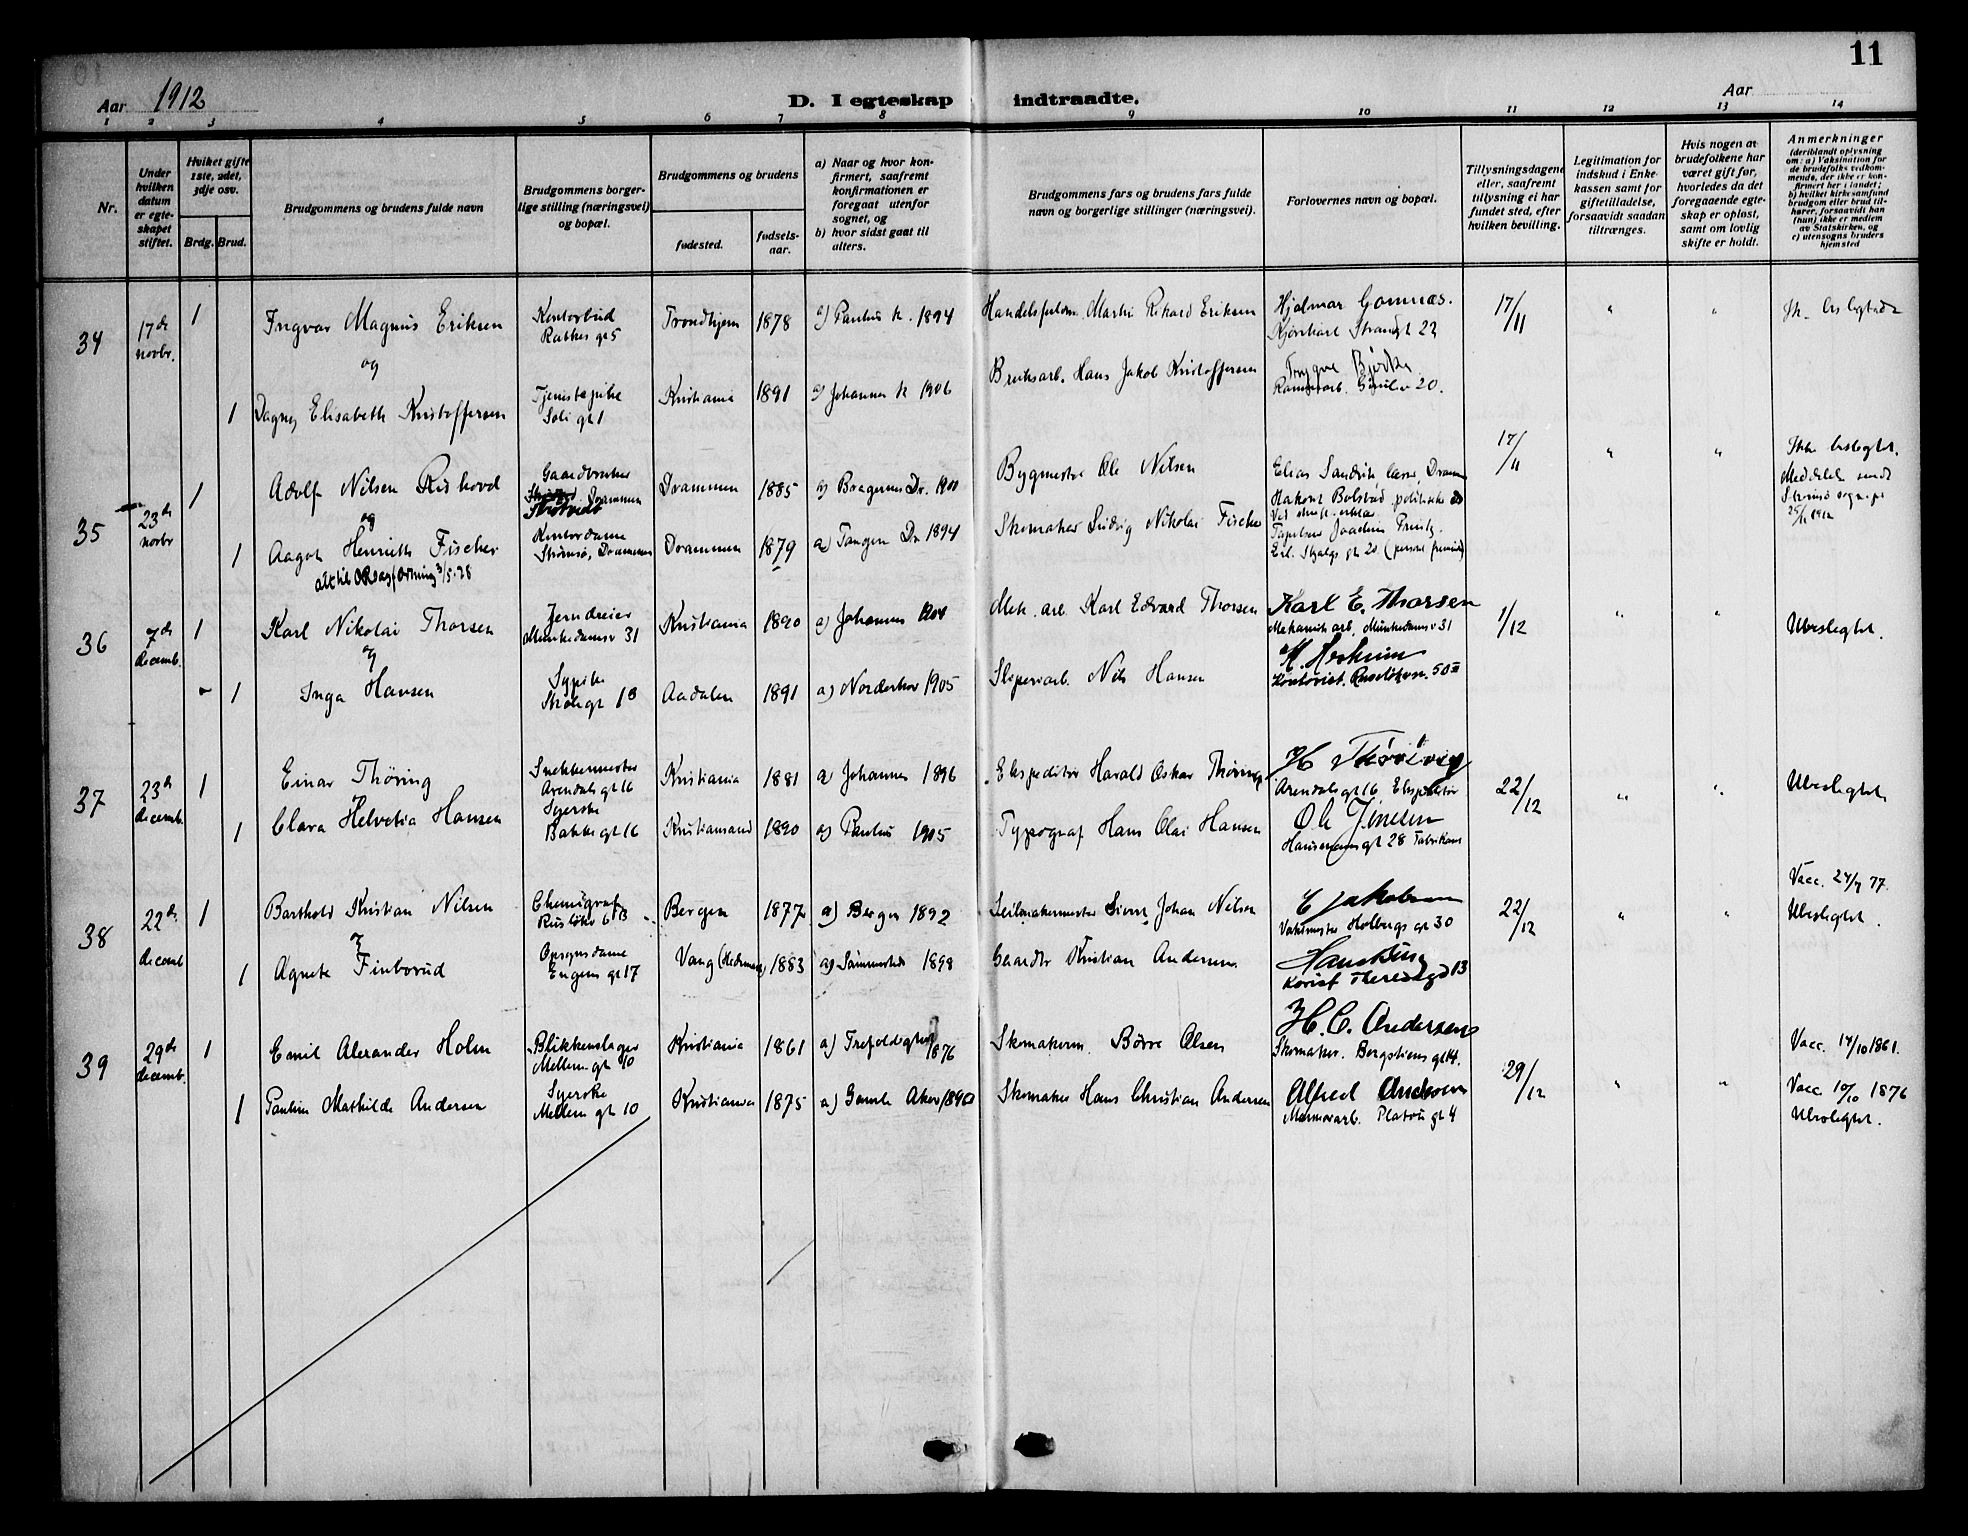 11
Aar 1912
D. I egteskap indtraadte.
Aar
1 2 3 4 5 6 7 8 9 10 11 12 13 14
Nr.
Under hvilken datum er egteskapet stiftet.
Hvilket gifte 1ste, 2det, 3dje osv.
Brdg. Brud.
Brudgommens og brudens fulde navn
Brudgommens borgerlige stilling (næringsvei) og bopæl.
Brudgommens og brudens
fødested.
fødselsaar.
a) Naar og hvor konfirmert, saafremt konfirmationen er foregaat utenfor sognet, og
b) hvor sidst gaat til alters.
Brudgommens fars og brudens fars fulde navn og borgerlige stillinger (næringsvei).
Forlovernes navn og bopæl.
Tillysningsdagene eller, saafremt tillysning ei har fundet sted, efter hvilken bevilling.
Legitimation for indskud i Enkekassen samt for giftetilladelse, forsaavidt saadan tiltrænges.
Hvis nogen av brudefolkene har været gift før, hvorledes da det foregaaende egteskap er opløst, samt om lovlig skifte er holdt.
Anmerkninger (deriblandt oplysning om: a) Vaksination for de brudefolks vedkommende, der ikke er konfirmert her i landet; b) hvilket kirkesamfund brudgom eller brud tilhører, forsaavidt han (hun) ikke er medlem av Statskirken, og c) utensogns bruders hjemsted
34 17de novbr. 1 Ingvar Magnus Eriksen Kontorbud Rathkes gt 5 Trondhjem 1878 a) Paulus k. 1894 Martin Rikard Eriksen Hjalmar 17/11
og
1 Dagny Elisabeth Kristoffersen Tjenestepike Soli gt 1 Kristiania 1891 a) Johannes k 1906 Bruksarb. Hans Jakob Kristoffersen Trygve 20.
35 23de novbr 1 Adolf Nilsen Gaardbruker Drammen Drammen 1885 a) Bragernes Dr. 1900 Bygmester Ole Nilsen 17/11 Ikke beslegtet.
og
1 Aagot Henriette Fischer Kontordame Strømsø, Drammen Drammen 1879 a) Tangen Dr 1894 Skomaker Ludvig Nikolai Fischer
36 7de decemb. 1 Karl Nikolai Thorsen Jerndreier Munkedamsv 31 Kristiania 1890 a) Johannes Mek. arb. Karl Edvard Thorsen Karl E. Thorsen Mekanisk arb, Munkedamsv 31 1/12 Ubeslegtet.
og
1 Inga Hansen Sypike Aadalen 1891 a) Norderhov 1905 Sliperiarb. Nils Hansen
37 23de decemb. 1 Einar Thøring Snekkermester Arendals gt 16 Kristiania 1881 a) Johannes 1896 Ekspeditør Harald Oskar Thøring H Thøring Arendals gt 16 Ekspeditør 22/12 Ubeslegtet
1 Clara Helvetia Hansen Syerske Bakke gt 16 Kristiansand 1890 a) Paulus 1905 Typograf Hans Olai Hansen Ole Jensen gt 28 Fabrikant
38 22de decemb 1 Barthold Kristian Nilsen Chemigraf Bergen 1877 a) Bergen 1892 Seilmakermester Johan Nilsen Jakobsen Vaktmester Holbergs gt 30 22/12 Vacc. 77. Ubeslegtet.
og
1 Agnete Finborud Opsynsdame Engens gt 17 Vang (Hedemark) 1883 1898 Gaardbr Kristian Andersen Theresesgd 13
39 29de decemb. 1 Emil Alexander Holm Blikkenslager Mellem gt 10 Kristiania 1861 a) Trefoldighed 1876 Skomakerm. Børre Olsen H. C. Andersen Skomaker. Bergstiens gt 14. 29/12 Vacc. 14/10 1861.
1 Pauline Mathilde Andersen Syerske Mellem gt 10 Kristiania 1875 a) Gamle Aker 1890 Skomaker Hans Christian Andersen Alfred Andersen Marmorarb. Platous gt 4 Vacc 10/10 1876 Ubeslegtet.